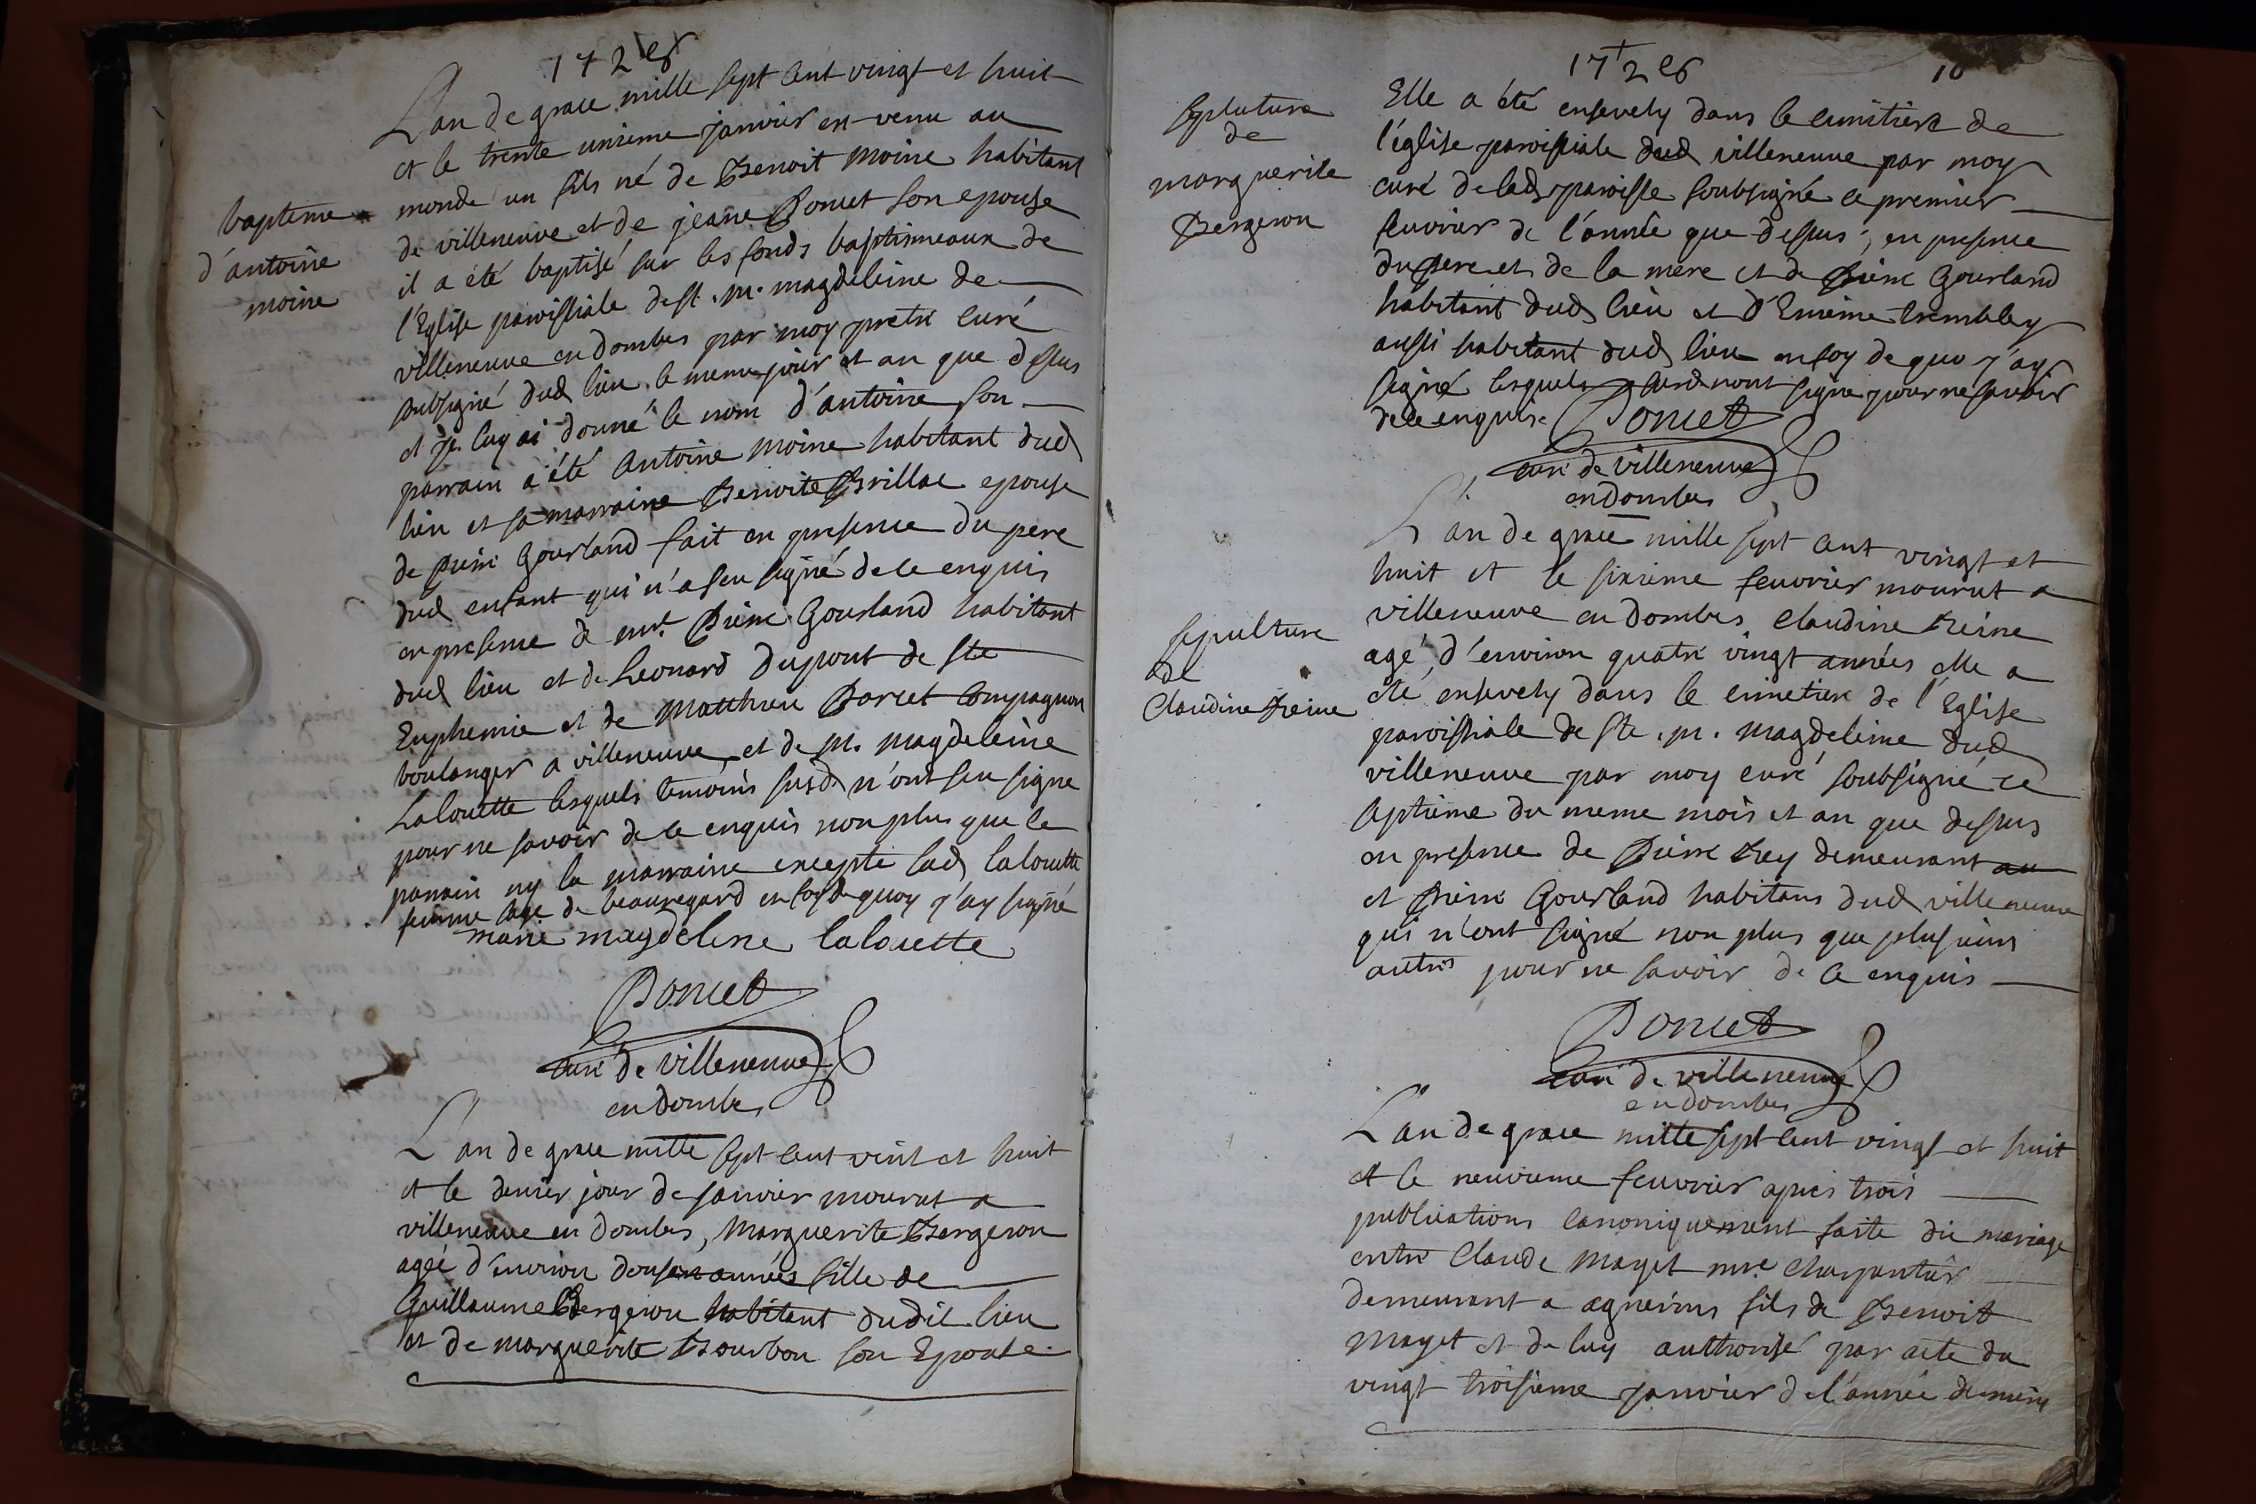 1728
L'an de grace mille sept cent vingt et huit
et le trente unieme janvier est venu au
monde un fils né de Benoit Moine habitant
de villeneuve et de jeane Poncet son epouse
il a été baptisé sur les fonds baptismeaux de
l'Eglise paroissiale de st. m. magdeleine de
villeneuve en dombes par moy pretre curé
soubsigné dud lieu le meme jour et an que dessus
et je luy ai donné le nom d'antoine son
parrain a été Antoine Moine habitant dud
lieu et sa marraine Benoite Brillac epouse
de pierre Gourland fait en presence du pere
dud enfant qui n'a seu signé de ce enquis
en presence de Pierre Gourland habitant
dud lieu et de Leonard Dupont de Ste
Euphemie et de Matthieu Parcet compagnon
boulanger a villeneuve et de M. magdeleine
Lalouette lesquels temoins susd n'ont seu signe
pour ne savoir de ce enquis non plus que le
parrain ny la marraine excepté lad lalouette
femme de beauregard en foy de quoy j'ay signé
marie magdelene lalouette
Poncet
curé de villeneuve
en dombes
bapteme
d'antoine
moine
L'an de grace mille sept cent vint et huit
et le denier jour de janvier mourut a
villeneuve en dombes, Marguerite Bergeron
agéé d'environ annéés fille de
Guillaume Bergeron habitant dudit lieu
et de marguerite Bourbon son Epouse
1728
10
sepluture
de
marguerite
Bergeron
Elle a été ensevely dans le cimitiere de
l'église paroissiale dud villeneuve par moy
curé de lad paroisse soubsigné ce premier
feuvrier de l'année que dessus, en presence
du pere et de la mere et de pierre Gourland
habitant dud lieu et d'Enieme trembley
aussi habitant dud lieu en foy de quoy j'ay
signé lesquels n'ont signe pour ne savoir
de ce enquis. Poncet
curé de villeneuve
en dombes
L'an de grace mille sept cent vingt et
huit et le sixieme feuvrier mourut a
villeneuve en dombes Claudine Reine
agé, d'environ quatre vingt années elle a
été ensevely dans le cimetiere de l'Eglise
paroissiale de Ste. m. Magdeleine dud
villeneuve par moy curé soubsigné ce
septieme du meme mois et an que dessus
en presence de Pierre Rey demeurant au
et Pierre Gourland habitans dud villeneuve
qui n'ont signé non plus que plusieurs
autres pour ne savoir de ce enquis
sepulture
de
Claudine Reine
Poncet
curé de villeneuve
en dombes
L'an de grace mille sept cent vingt et huit
et le neuvieme feuvrier apres trois
publications canoniquement faite du mariage
entre Claude Mayet mre charpantier
demeurant a agnerins fils de Benoit
Mayet et de luy authorisé par acte du
vingt troisieme janvier de l'année derniere